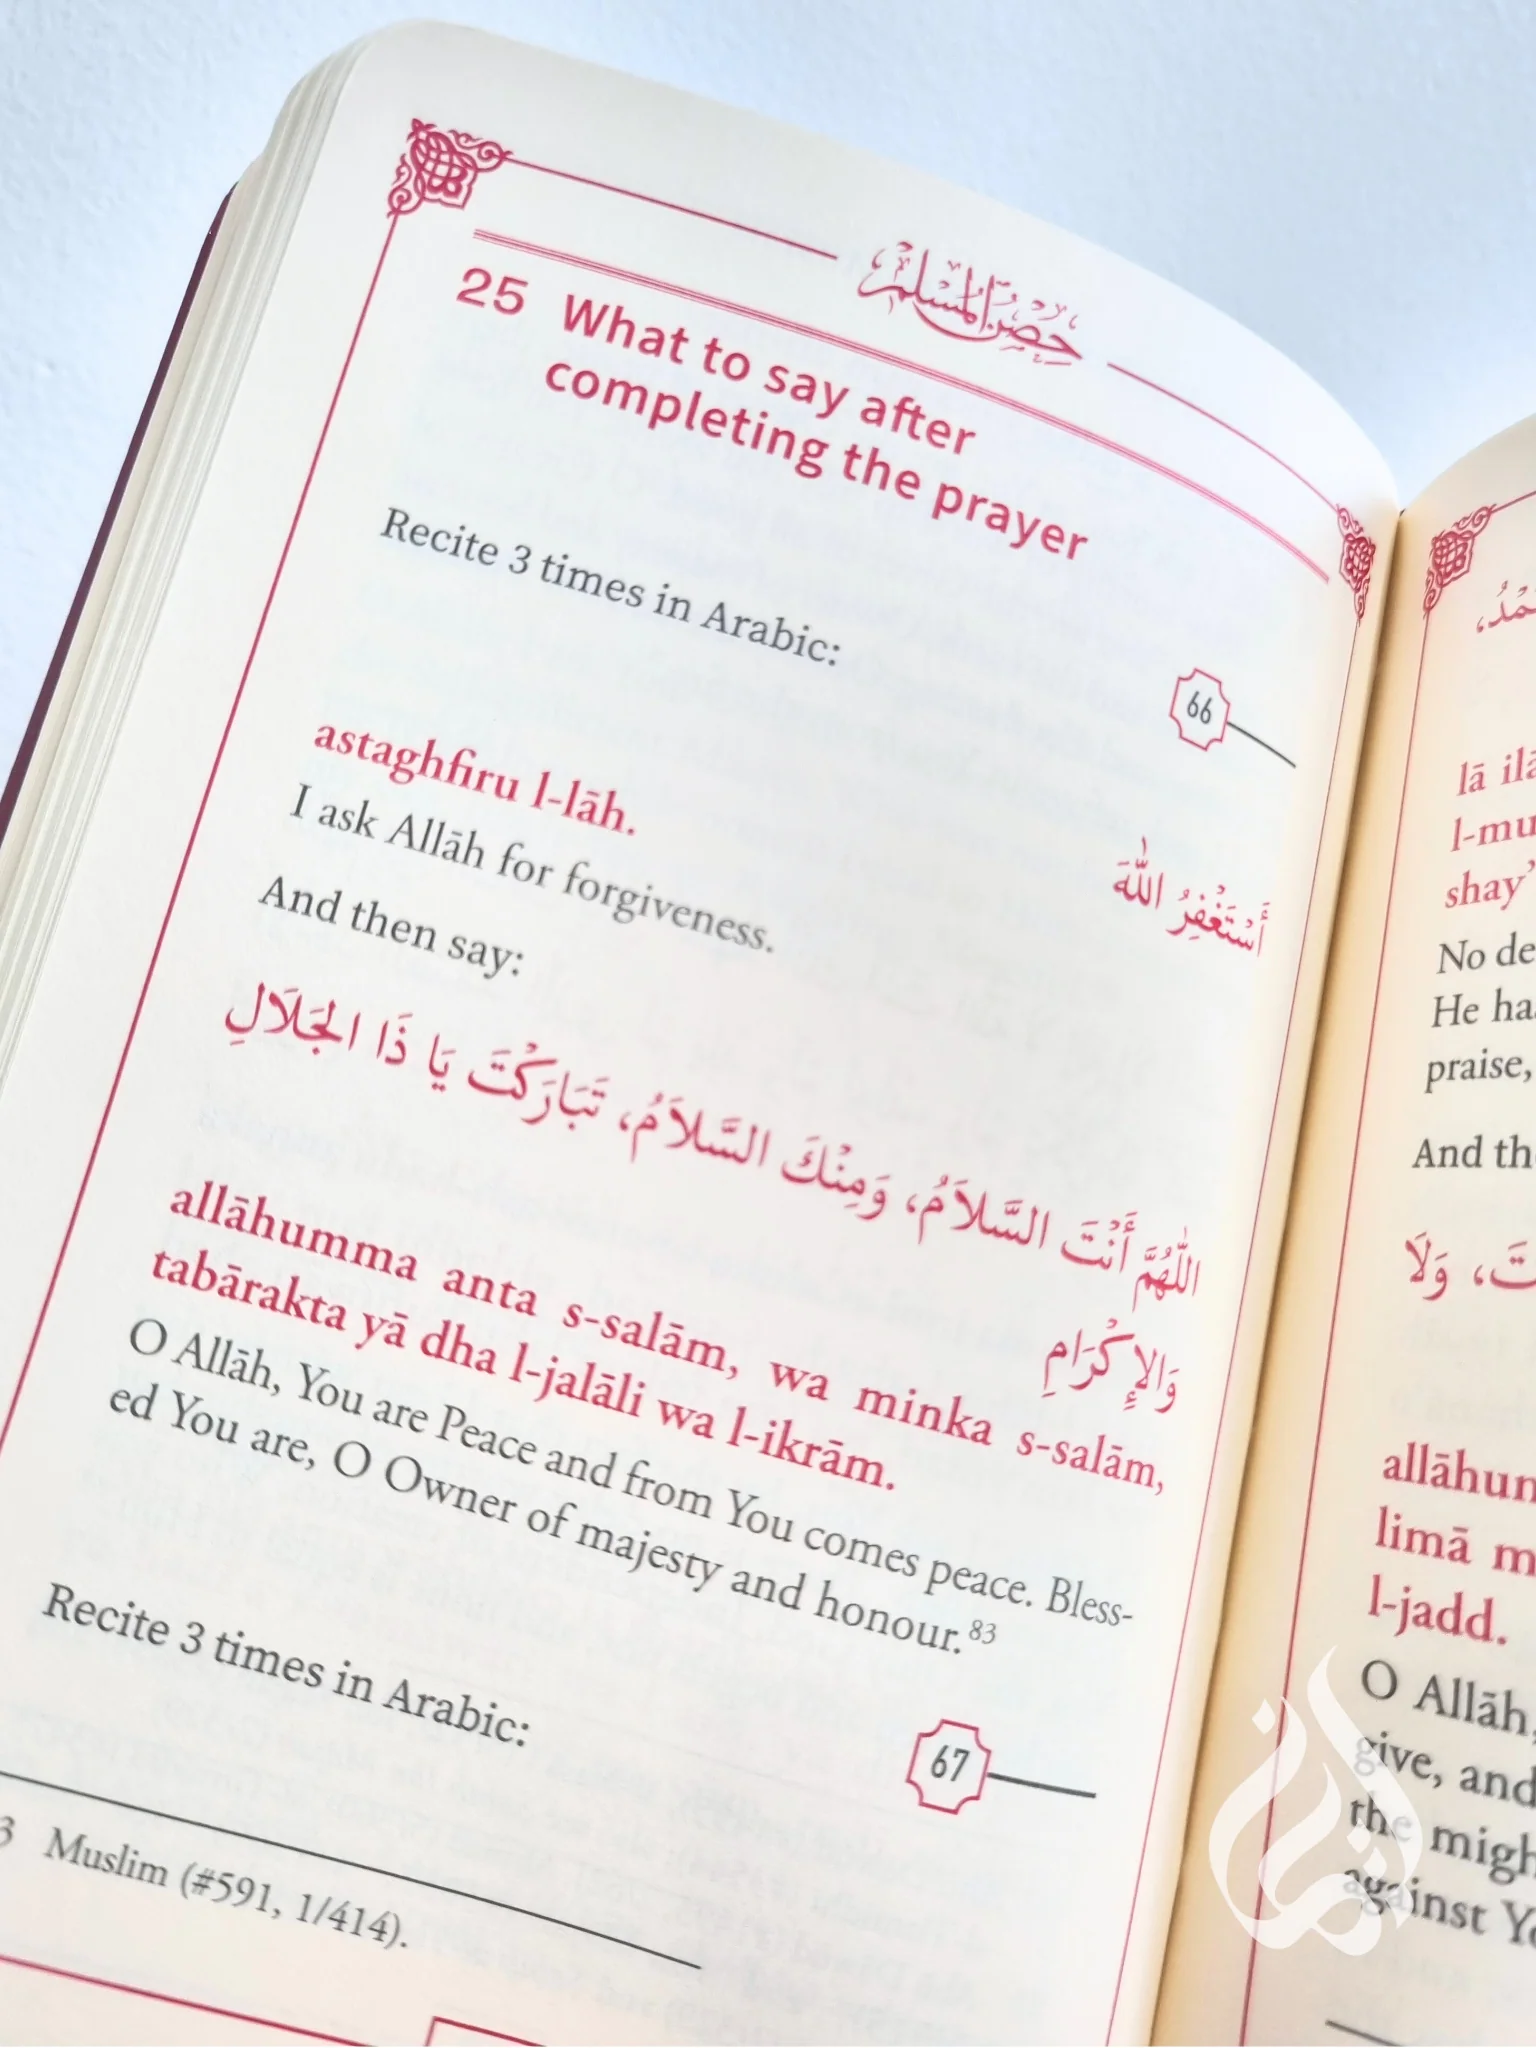 حِصْنُ المُسْلِمِ
25 What to say after
completing the prayer
Recite 3 times in Arabic:
66
أَسْتَغْفِرُ اللّٰهَ
astaghfiru l-lāh.
I ask Allāh for forgiveness.
And then say:
اللّٰهُمَّ أَنْتَ السَّلاَمُ، وَمِنْكَ السَّلاَمُ، تَبَارَكْتَ يَا ذَا الجَلَالِ
وَالإِكْرَامِ
allāhumma anta s-salām, wa minka s-salām,
tabārakta yā dha l-jalāli wa l-ikrām.
O Allāh, You are Peace and from You comes peace. Bless-
ed You are, O Owner of majesty and honour.83
Recite 3 times in Arabic:
67
3 Muslim (#591, 1/414).
lā
l-mu
shay’
No de
He ha
praise,
And th
وَلَا
allāhum
limā m
l-jadd.
O Allāh,
give, and
the migh
against Yo